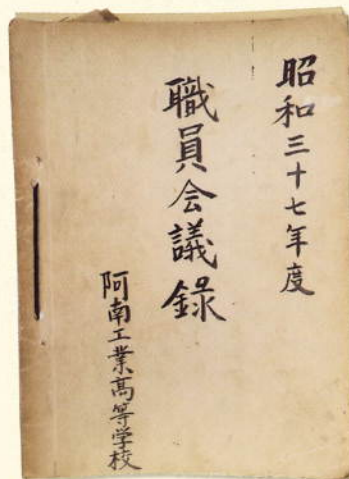 昭和三十七年度
職員会議録
阿南工業高等学校